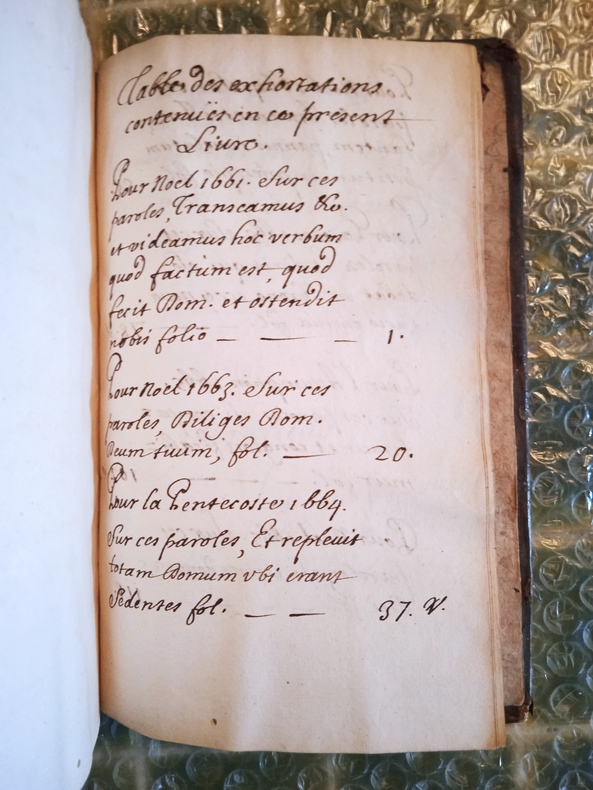 Table des exhortations
contenuës en ce present
Livre.
Pour Noel 1661. Sur ces
paroles, Transeamus &c.
et videamus hoc verbum
quod factum est, quod
fecit Dom. et ostendit
nobis folio — — — 1.
Pour Noel 1663. Sur ces
paroles, Diliges Dom.
Deum tuum, fol. — 20.
Pour la Pentecoste 1664.
Sur ces paroles, Et repleuit
totam Domum vbi erant
Sedentes fol. — — 37. v.